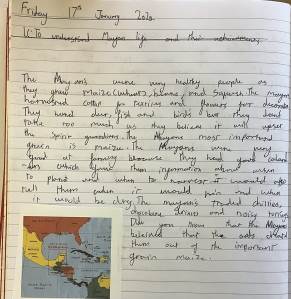 Friday 17th January 2020
LC: To understand Mayan life and their achievements.
The Mayans were very healthy people as
they grew maize (wheat), beans, and squash. The mayans
harvested cotton for textiles and flowers for decoration
They hunted deer, fish and birds but they dont
take too much as they believe it will upset
the spirit guardians. The Mayans most important
green is maize. The Mayans were very
good at farming because They had good calend-
ars which gave them information about when
to plant and when to harvest it would also
tell them when it would rain and when
it would be dry. The mayans traded chillies,
and noisy turkeys
Did you know that the Mayans
believed that the gods created
them out of the important
grain maize.